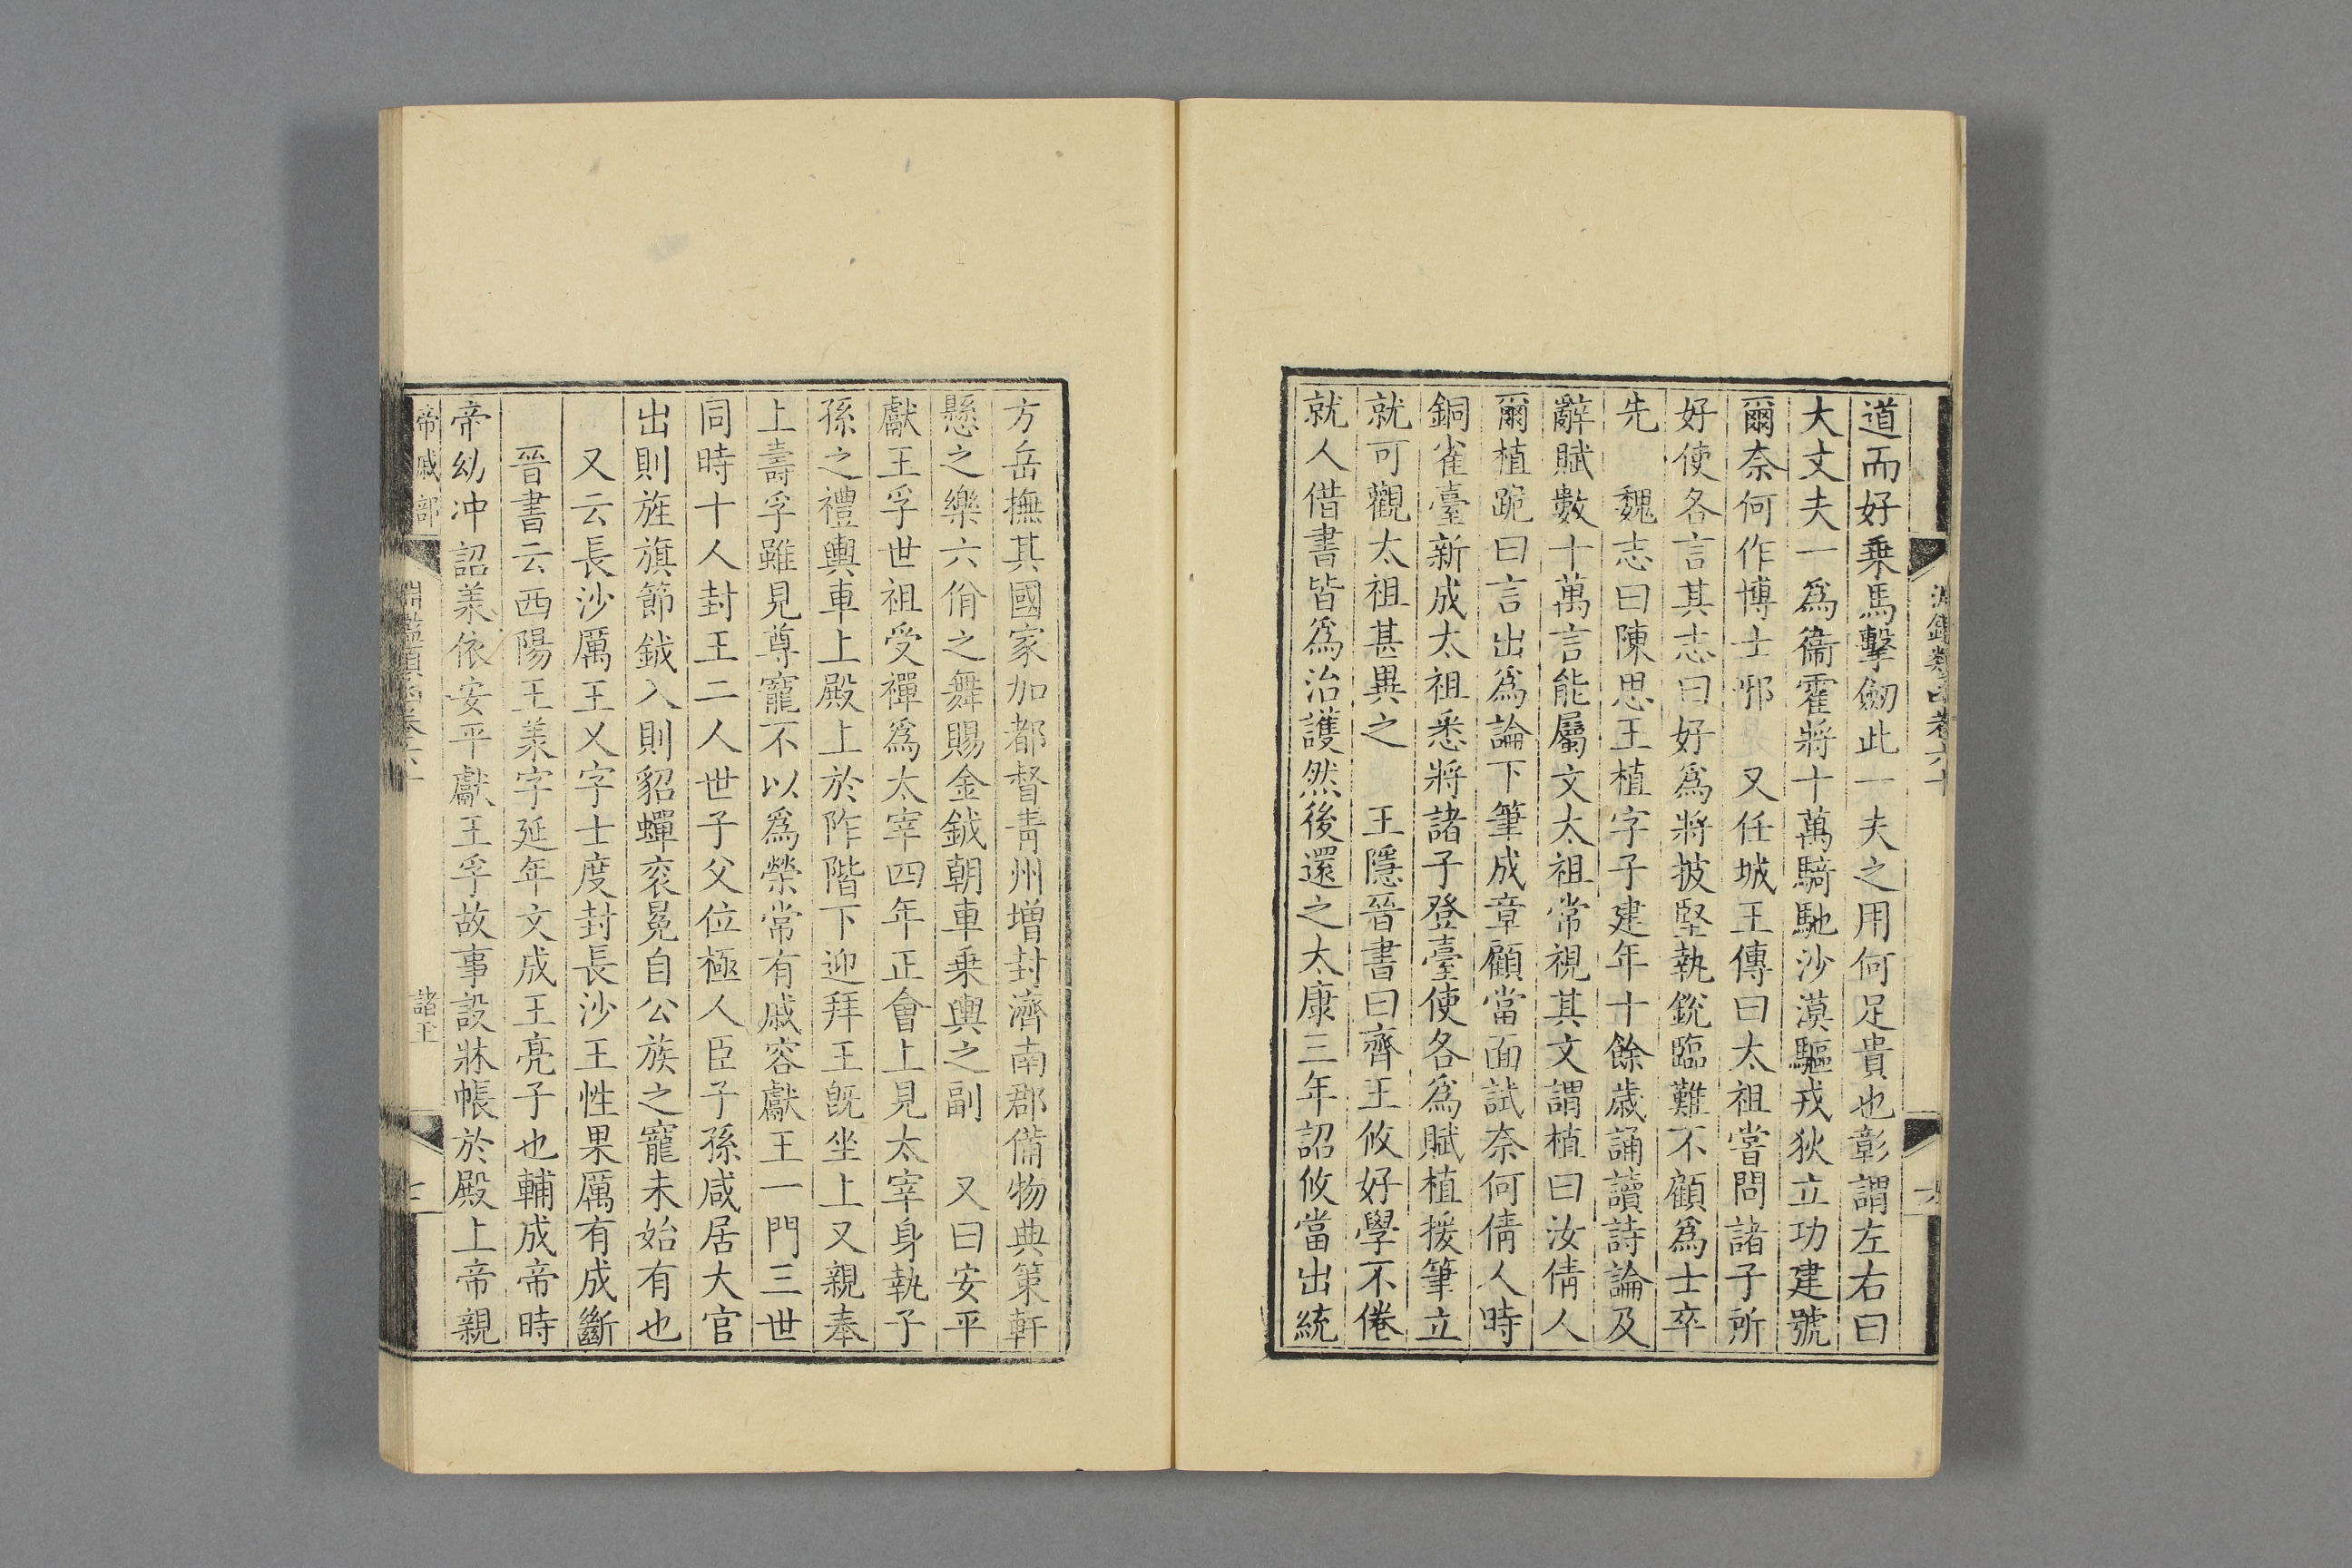 道而好乗馬擊劒此一夫之用何足貴也彰謂左右曰
大丈夫一爲衞霍將十萬騎馳沙漠驅戎狄立功建號
爾奈何作博士邪　又任城王傳曰太祖嘗問諸子所
好使各言其志曰好爲將披堅執銳臨難不顧爲士卒
先　魏志曰陳思王植字子建年十餘歲誦讀詩論及
辭賦數十萬言能屬文太祖常視其文謂植曰汝倩人
爾植跪曰言出爲論下筆成章顧當面試奈何倩人時
銅雀臺新成太祖悉將諸子登臺使各爲賦植援筆立
就可觀太祖甚異之　王隱晉書曰齊王攸好學不倦
就人借書皆爲治護然後還之太康三年詔攸當出統
方岳撫其國家加都督靑州增封濟南郡備物典策軒
懸之樂六佾之舞賜金鉞朝車乗輿之副　又曰安平
獻王孚世祖受禪爲太宰四年正會上見太宰身執子
孫之禮輿車上殿上於阼階下迎拜王旣坐上又親奉
上壽孚雖見尊寵不以爲榮常有戚容獻王一門三世
同時十人封王二人世子父位極人臣子孫咸居大官
出則旌旗節鉞入則貂蟬衮冕自公族之寵未始有也
又云長沙厲王乂字士度封長沙王性果厲有成斷
晉書云西陽王羕字延年文成王亮子也輔成帝時
帝幼冲詔羕依安平獻王孚故事設牀帳於殿上帝親
帝戚部
諸王